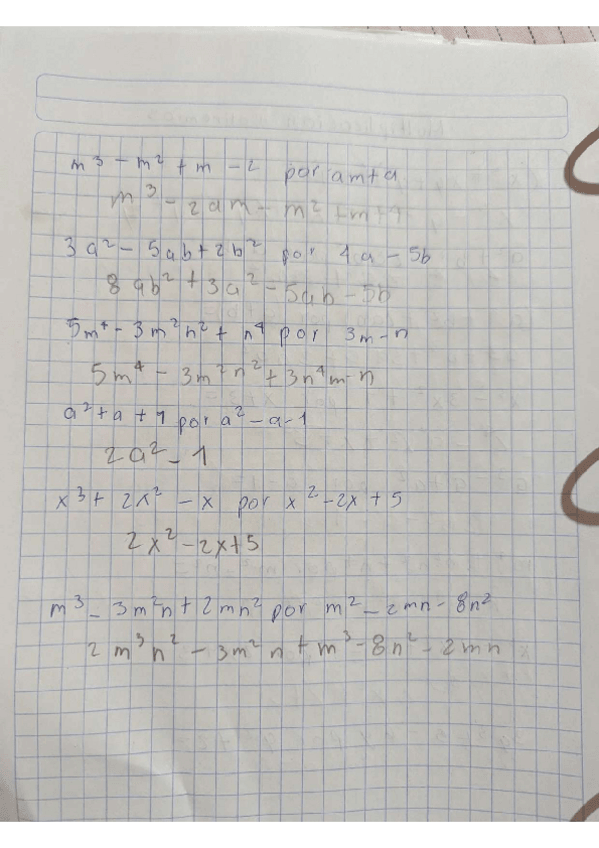 m³ - m² + m - 2 por am + a
m³ - 2am - m² + m + a
3a² - 5ab + 2b² por 4a - 5b
8ab² + 3a² - 5ab - 5b
5m⁴ - 3m²n² + n⁴ por 3m - n
5m⁴ - 3m²n² + 3n⁴m - n
a² + a + 1 por a² - a - 1
2a² - 1
x³ + 2x² - x por x² - 2x + 5
2x² - 2x + 5
m³ - 3m²n + 2mn² por m² - 2mn - 8n²
2m³n² - 3m²n + m³ - 8n² - 2mn